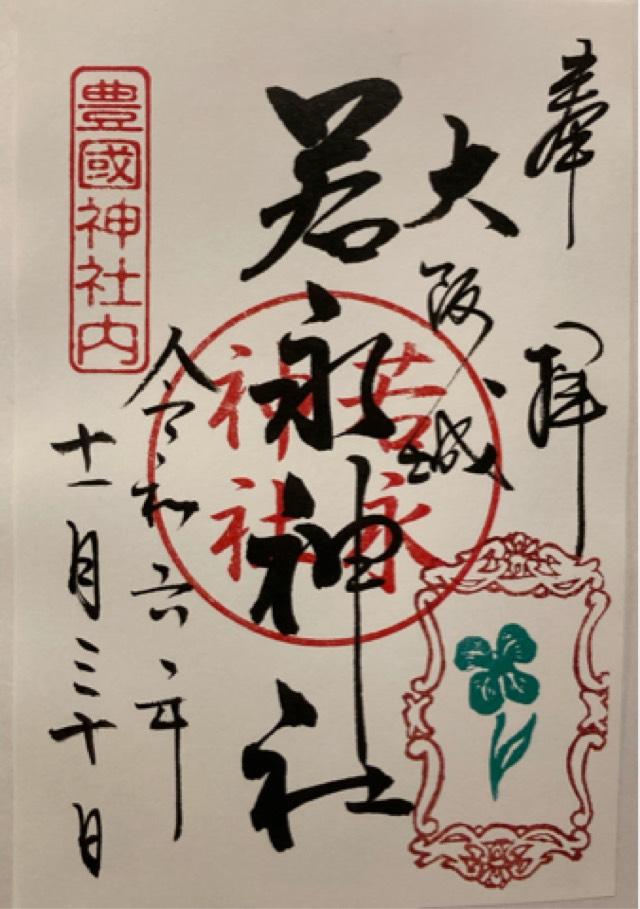 奉拝
大阪城
若永神社
若永
神社
令和六年
十一月三十日
豊國神社内